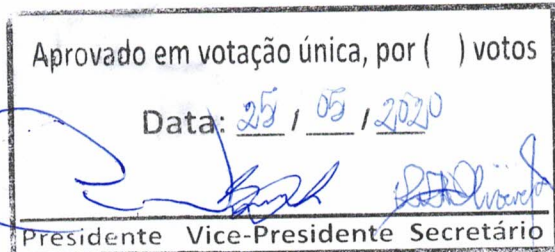 Aprovado em votação única, por (   ) votos
Data: 25 / 05 / 2020
Presidente Vice-Presidente Secretário